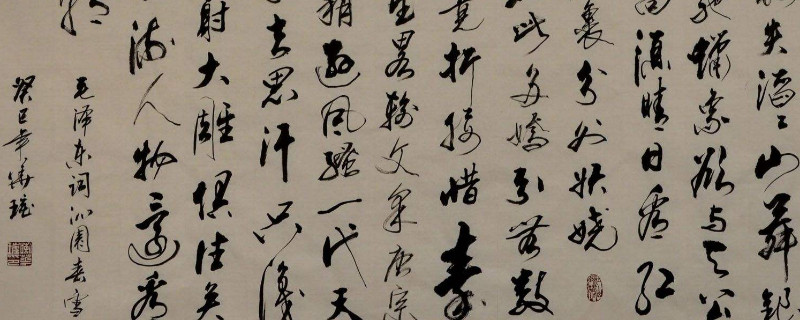 失滔滔山舞银
驰蜡象欲与天公
须晴日看红
裹分外妖娆
此多娇引无数
竞折腰惜秦
略输文采唐宗
稍逊风骚一代天
吉思汗只识
射大雕俱往矣
流人物还看
朝
毛泽东词沁园春雪
癸巳年